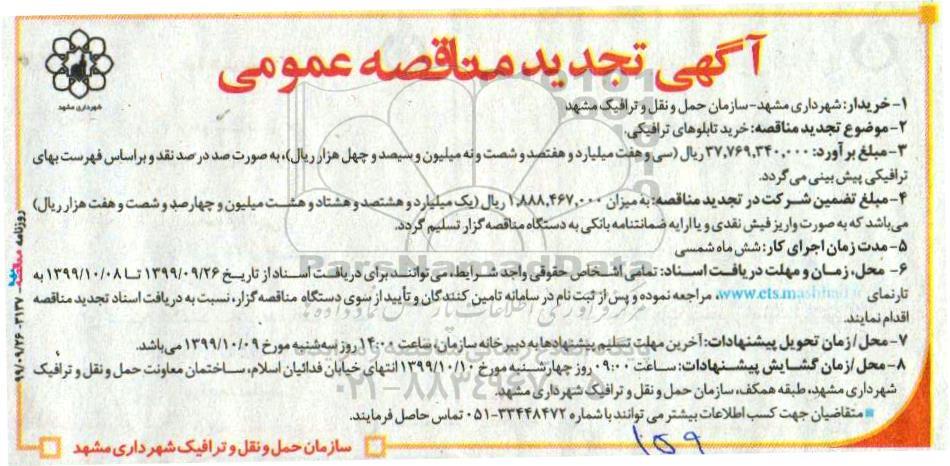 آگهی تجدید مناقصه عمومی
شهرداری مشهد
۱- خریدار: شهرداری مشهد- سازمان حمل و نقل و ترافیک مشهد
۲- موضوع تجدید مناقصه: خرید تابلوهای ترافیکی.
۳- مبلغ برآورد: ۳۷,۷۶۹,۳۴۰,۰۰۰ ریال (سی و هفت میلیارد و هفتصد و شصت و نه میلیون و سیصد و چهل هزار ریال)، به صورت صد در صد نقد و براساس فهرست بهای
ترافیکی پیش بینی می گردد.
۴- مبلغ تضمین شرکت در تجدید مناقصه: به میزان ۱,۸۸۸,۴۶۷,۰۰۰ ریال (یک میلیارد و هشتصد و هشتاد و هشت میلیون و چهارصد و شصت و هفت هزار ریال)
می‌باشد که به صورت واریز فیش نقدی و یا ارایه ضمانتنامه بانکی به دستگاه مناقصه گزار تسلیم گردد.
۵- مدت زمان اجرای کار: شش ماه شمسی
۶- محل، زمان و مهلت دریافت اسناد: تمامی اشخاص حقوقی واجد شرایط، می توانند برای دریافت اسناد از تاریخ ۱۳۹۹/۰۹/۲۶ تا ۱۳۹۹/۱۰/۰۸ به
تارنمای www.ets.mashhad.ir، مراجعه نموده و پس از ثبت نام در سامانه تامین کنندگان و تأیید از سوی دستگاه مناقصه گزار، نسبت به دریافت اسناد تجدید مناقصه
اقدام نمایند.
۷- محل/زمان تحویل پیشنهادات: آخرین مهلت تسلیم پیشنهادها به دبیرخانه سازمان، ساعت ۱۴:۰۰ روز سه‌شنبه مورخ ۱۳۹۹/۱۰/۰۹ می‌باشد.
۸- محل/زمان گشایش پیشنهادات: ساعت ۰۹:۰۰ روز چهارشنبه مورخ ۱۳۹۹/۱۰/۱۰ انتهای خیابان فدائیان اسلام، ساختمان معاونت حمل و نقل و ترافیک
شهرداری مشهد، طبقه همکف، سازمان حمل و نقل و ترافیک شهرداری مشهد.
متقاضیان جهت کسب اطلاعات بیشتر می توانند با شماره ۳۳۴۴۸۴۷۲-۰۵۱ تماس حاصل فرمایند.
سازمان حمل و نقل و ترافیک شهرداری مشهد
روزنامه مناقصه ۲۱۳۷- ۹۹/۰۹/۲۶
ParsNamadData
۰۲۱-۸۸۳۴۹۶۷۰-۵
۱۵۹